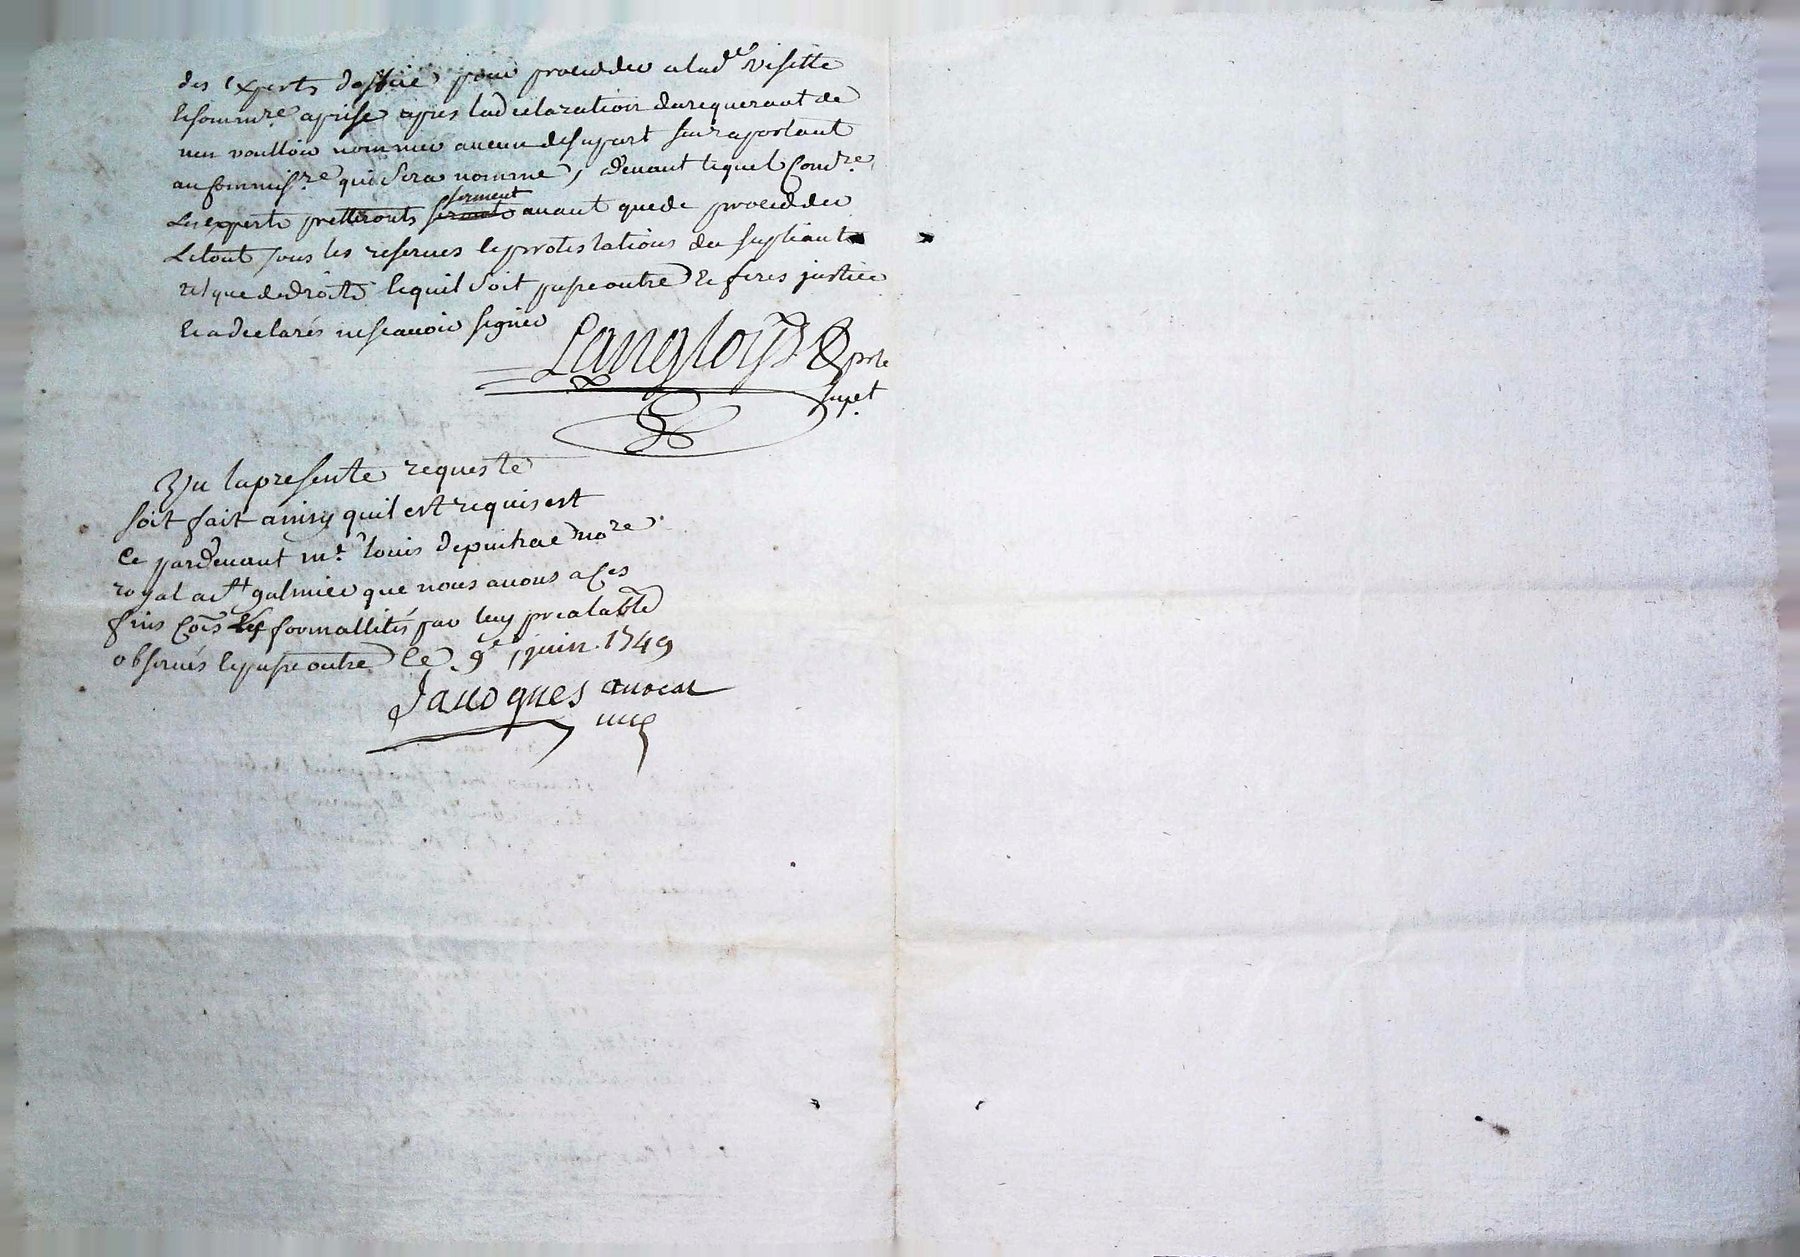 des experts doffice pour proceder a lad.e visitte
et sommre aprise apres la declaration du requerant de
nen voulloir nommer aucun de sa part sen raportant
au commissre qui sera nommé, devant lequel
les experts pretteront serment avant que de proceder
le tout sous les reserves et protestations du supliant
tel que de droit et quil soit passe outre et feres justice
et a declarés ne scavoir signer
Langloys
Vu la presente requeste
soit fait ainsy quil est requis et
ce pardevant mr. louis depuihac nore
royal a st galmier que nous avons a ces
fins cōis les formallités par luy prealable
observés et passe outre ce 9e juin 1749
Jacoques avocat